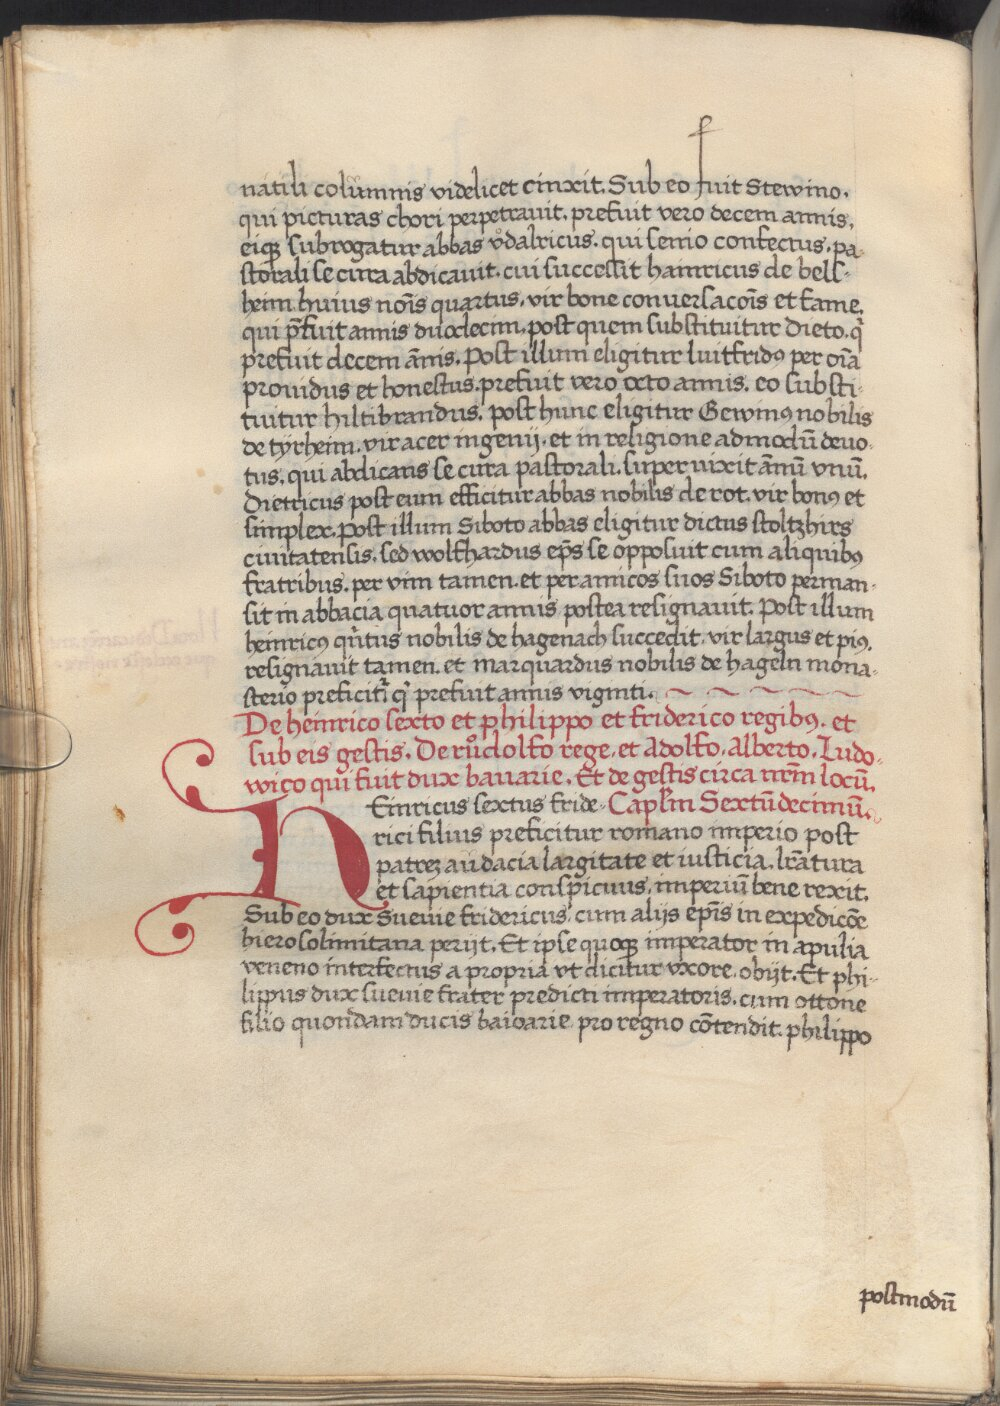 natili colūmnis videlicet cinxit. Sub eo fuit Stewino.
qui picturas chori perpetrauit. prefuit vero decem annis.
eiqꝫ subrogatur abbas vͦdalricus. qui senio confectus. pa-
storali se cura abdicauit. cui successit hainricus de bels-
heim. huius nōis quartus. vir bone conuersacōis et fame.
qui p̄fuit annis duodecim. post quem substituitur Dieto. qͥ
prefuit decem ānis. Post illum eligitur luitfridꝰ per oīa
prouidus et honestus. prefuit vero octo annis. eo substi-
tuitur hiltibrandus. post hunc eligitur Gewinꝰ nobilis
de tÿrheim. vir acer ingenij. et in religione admodū deuo-
tus. qui abdicans se cura pastorali. superuixit āmū vnū.
Dietricus post eum efficitur abbas nobilis de rot. vir bonꝰ et
simplex. Post illum Siboto abbas eligitur dictus stoltzhirs
ciuitatensis. sed wolfhardus ep̄s se opposuit cum aliquibꝰ
fratribus. per vim tamen. et per amicos suos Siboto perman-
sit in abbacia quatuor annis postea resignauit. Post illum
heinricꝰ qͥntus nobilis de hagenach succedit. vir largus et piꝰ.
resignauit tamen. et marquardus nobilis de hageln mona-
sterio preficitr̄ qͥ prefuit annis viginti.
De heinrico sexto et philippo et friderico regibꝰ. et
sub eis gestis. De růdolfo rege. et Adolfo. Alberto. Ludo-
wico qui fuit dux bauarie. Et de gestis circa nr̄m locū.
HEinricus sextus fride- Capl̄m Sextūdecimū.
rici filius preficitur romano imperio post
patreꝫ audacia largitate et iusticia. lr̄atura
et sapientia conspicuus. imperiū bene rexit.
Sub eo dux Sueuie fridericus. cum alijs ep̄is in expedicōe
hierosolimitana perijt. Et ipse quoqꝫ imperator in apulia
veneno interfectus a propria vt dicitur vxore. obijt. Et phi-
lippus dux sueuie frater predicti imperatoris. cum ottone
filio quondam ducis baioarie pro regno cōtendit. philippo
postmodū